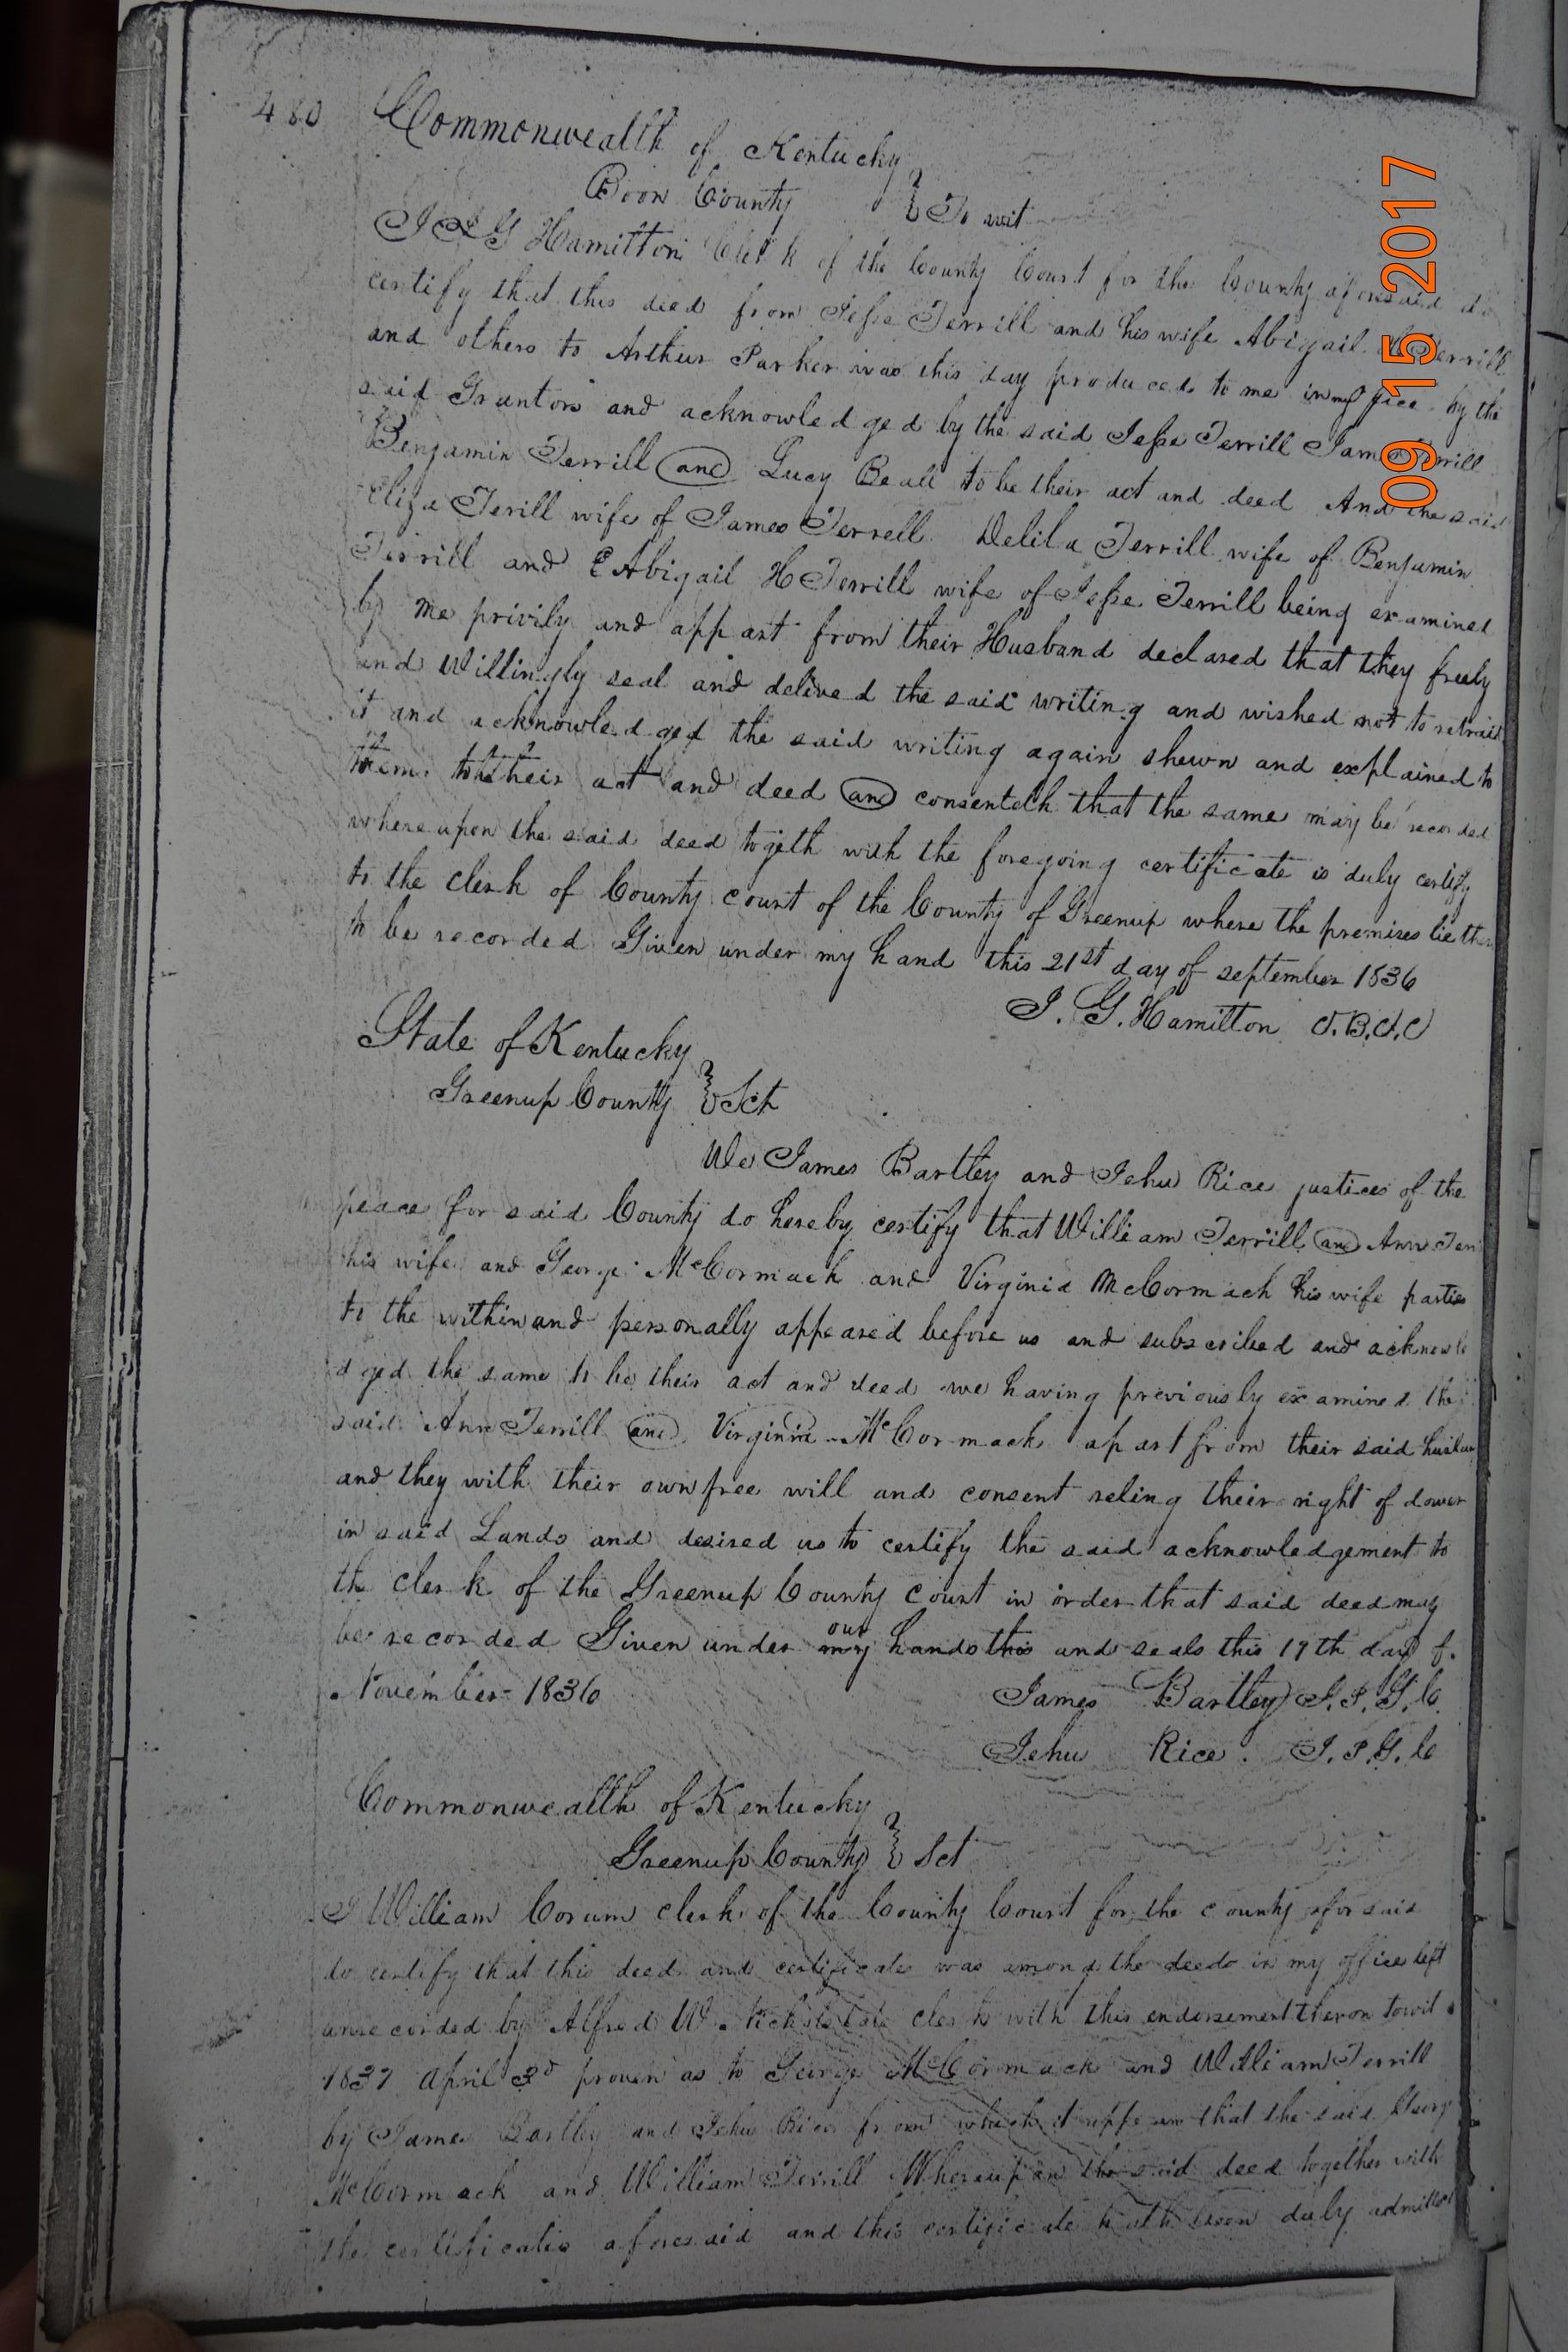 480
Commonwealth of Kentucky
Boon County } To wit
I J G Hamilton Clerk of the County Court for the County aforesaid do
certify that this deed from Jesse Terrill and his wife Abigail H Terrill
and others to Arthur Parker was this day produced to me in my office by the
said Grantors and acknowledged by the said Jesse Terrill James Terrill
Benjamin Terrill and Lucy Beall to be their act and deed And the said
Eliza Terill wife of James Terrell Delila Terrill wife of Benjamin
Terrill and E Abigail H Terrill wife of Jesse Terrill being examined
by me privily and appart from their Husband declared that they freely
and Willingly seal and delived the said writing and wished not to retrait
it and acknowledged the said writing again shewn and explained to
them to their act and deed and consenteth that the same may be recorded
whereupon the said deed togeth with the foregoing certificate is duly certify
to the clerk of County court of the County of Greenup where the premises lie ther
to be recorded Given under my hand this 21st day of september 1836
J. G. Hamilton C.B.C.C
State of Kentucky
Greenup County } Sct
We James Bartley and Jehu Rice justices of the
peace for said County do hereby certify that William Terrill and Ann Terr
his wife and George McCormack and Virginia McCormack his wife parties
to the within and personally appeared before us and subscribed and acknowle
dged the same to be their act and deed we having previously examined the
said Ann Terrill and Virginia McCormack apart from their said husban
and they with their own free will and consent relinq their right of dower
in said Lands and desired us to certify the said acknowledgement to
th clerk of the Greenup County Court in order that said deed may
be recorded Given under my our hands this and seals this 19th day f.
November 1836
James Bartley J.P.G.C.
Jehu Rice. J.P.G.C
Commonwealth of Kentucky
Greenup County } Sct
I William Corum clerk of the County Court for the county aforsaid
do certify that this deed and certificates was among the deeds in my office left
unrecorded by Alfred W. late clerk with this endorsement theron towit
1837 April 3d proven as to George McCormack and William Terrill
by James Bartley and Jehu Rice from which it appears that the said Georg
McCormack and William Terrill Whereupon the said deed together with
the certificatis aforesaid and this certificate hath been duly admitted
09 15 2017